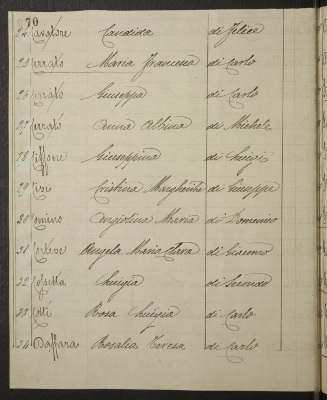 70
24 Candida di Felice
25 Cerrato Maria Francesca di Carlo
26 Cerrato Giuseppa di Carlo
27 Cerrato Anna Albina di Michele
28 Giuseppina di Luigi
29 Cristina Margherita di Giuseppe
30 Angiolina Maria di Domenico
31 Cortese Angela Maria Clara di Giacomo
32 Luigia di Secondo
33 Cotti Rosa Luigia di Carlo
34 Daffara Rosalia Teresa di Carlo